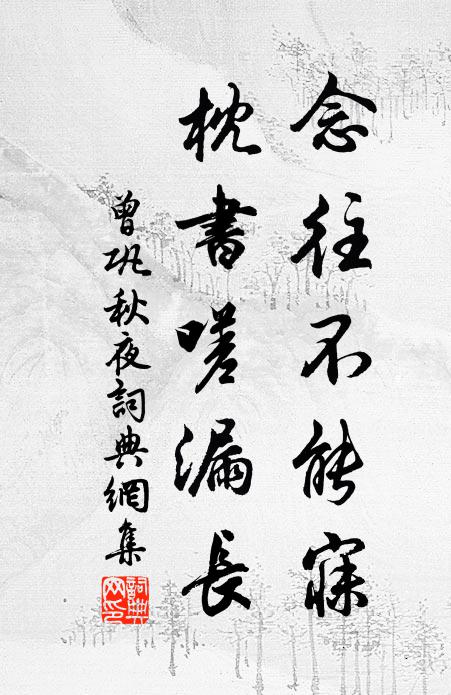 念往不能寐
枕書嗟漏長
曾鞏秋夜詞典網集
詞典
網印